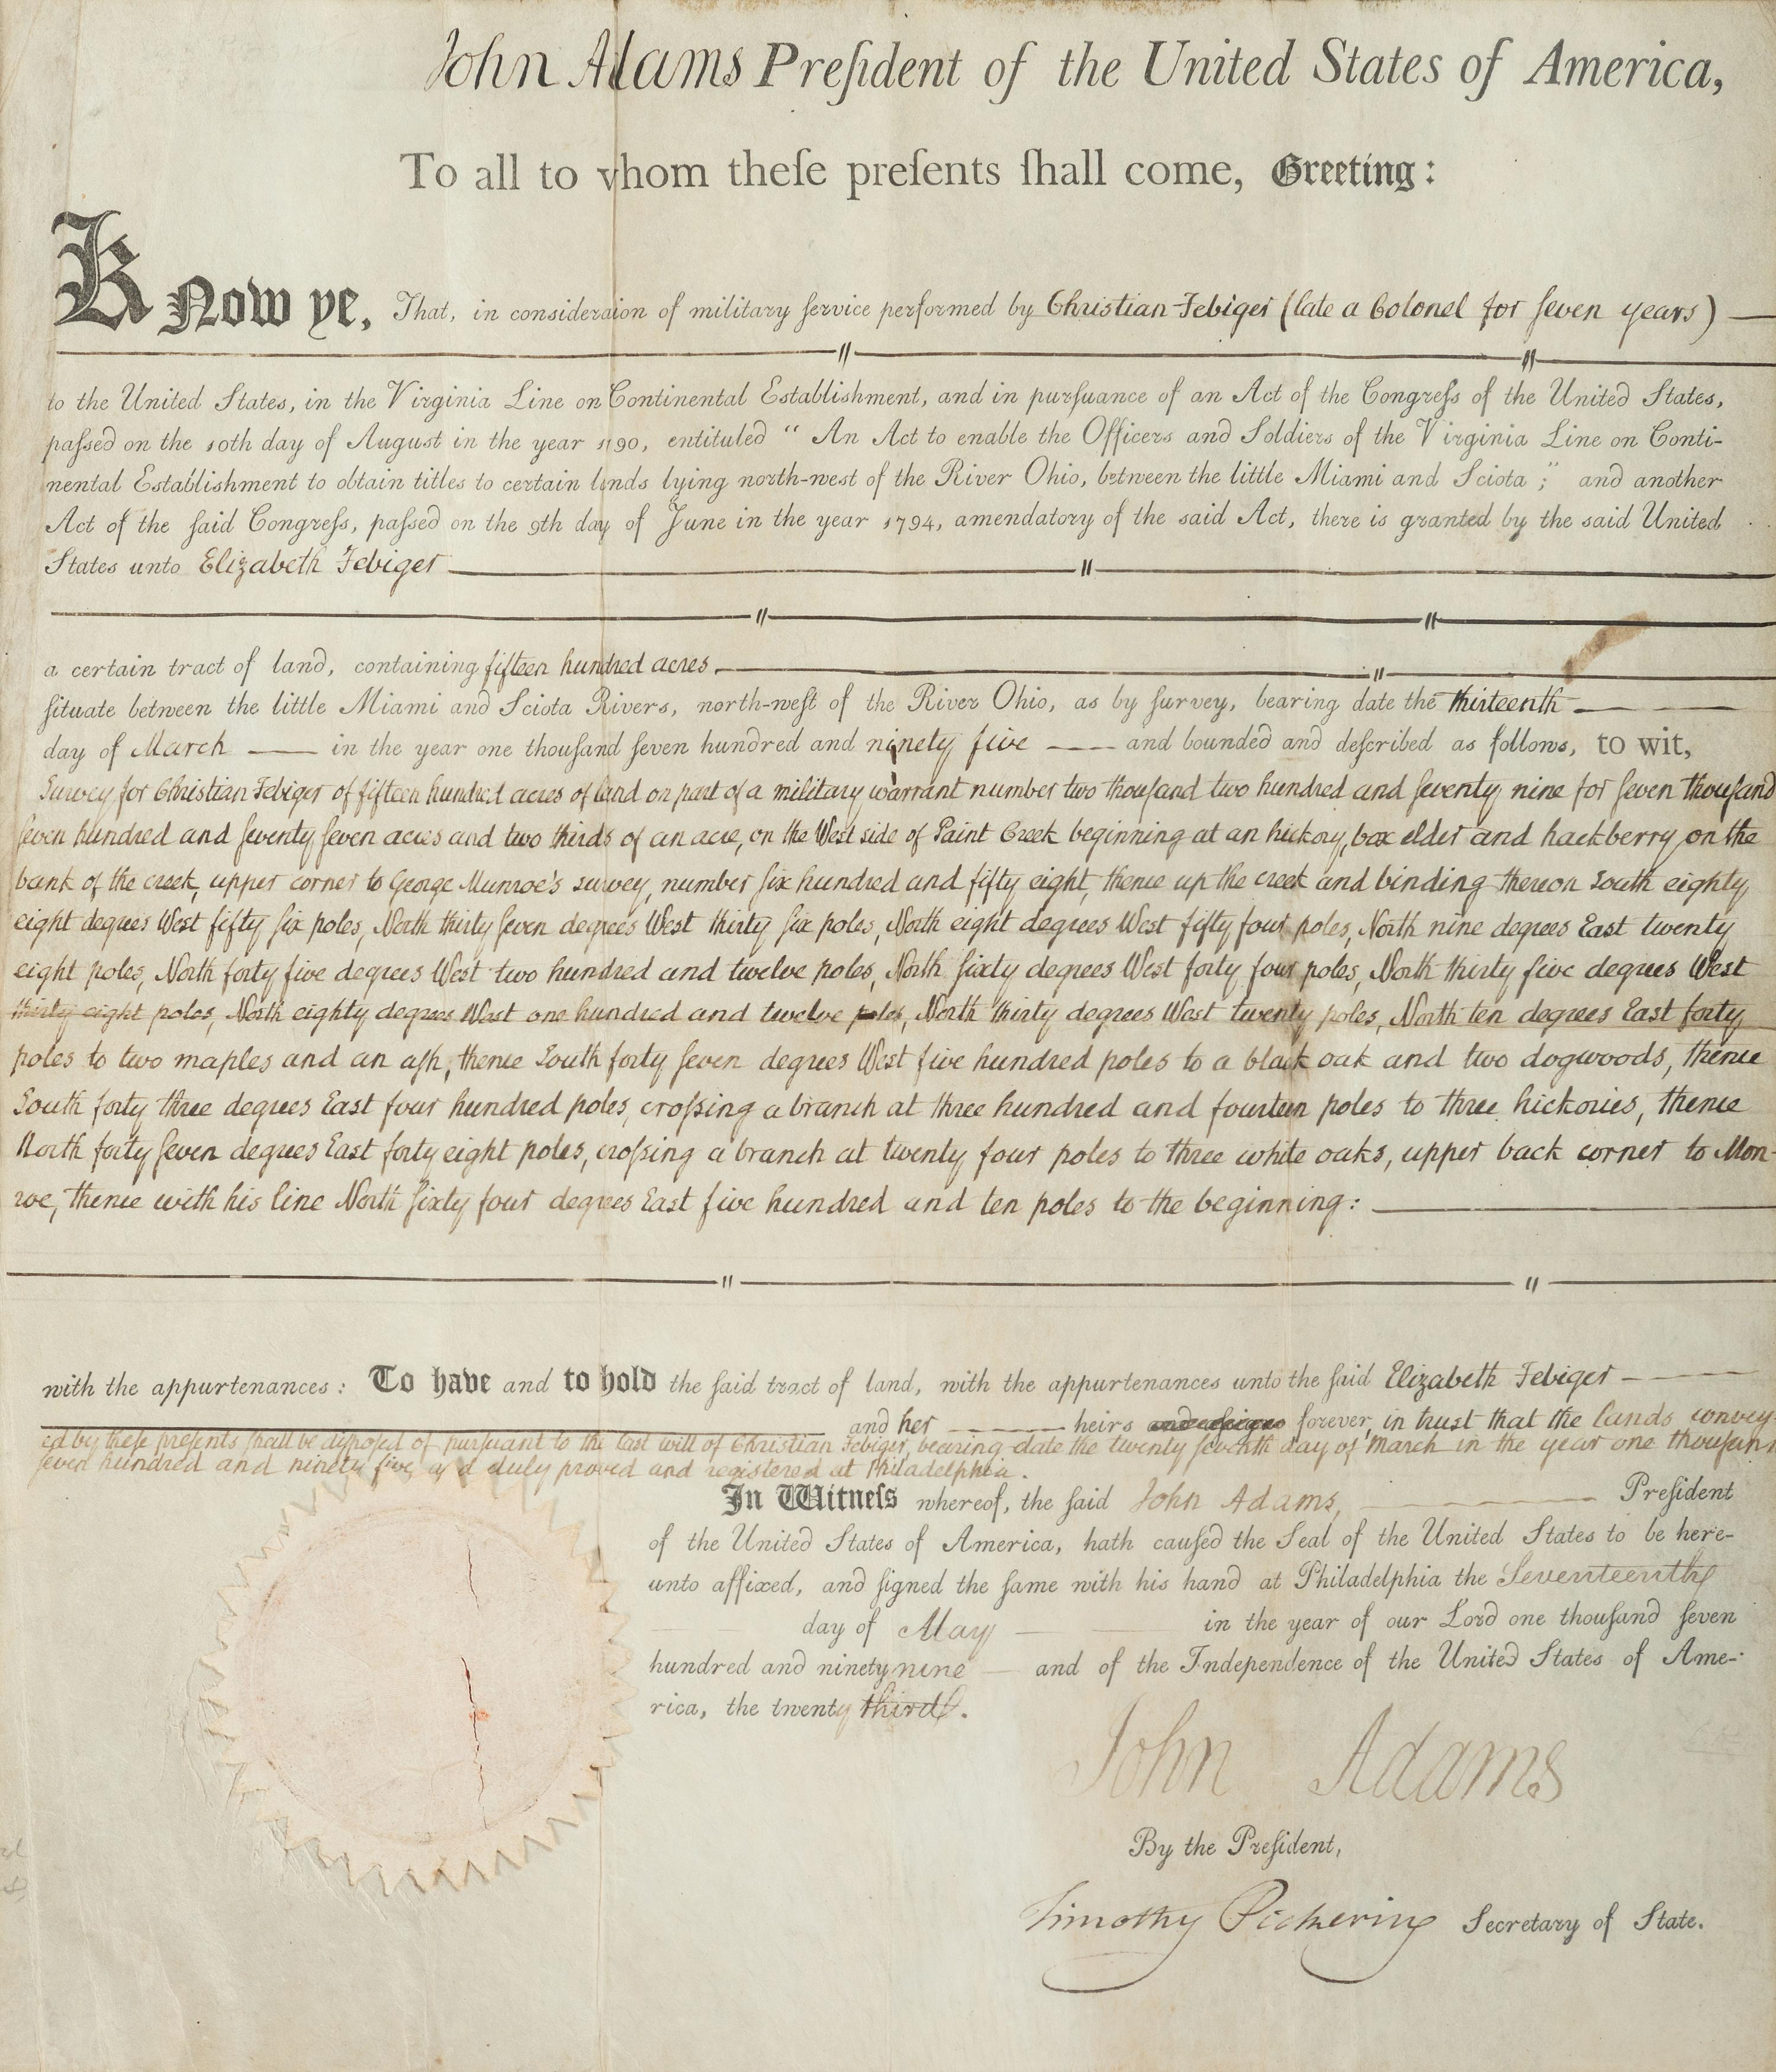 John Adams Preſident of the United States of America,
To all to whom theſe preſents ſhall come, Greeting:
Know ye, That, in consideraion of military ſervice performed by Christian Febiger (late a Colonel for ſeven years)
to the United States, in the Virginia Line on Continental Establishment, and in purſuance of an Act of the Congreſs of the United States,
paſsed on the 10th day of August in the year 1790, entituled “ An Act to enable the Officers and Soldiers of the Virginia Line on Conti-
nental Establishment to obtain titles to certain lands lying north-west of the River Ohio, between the little Miami and Sciota ;” and another
Act of the ſaid Congreſs, paſsed on the 9th day of June in the year 1794, amendatory of the said Act, there is granted by the said United
States unto Elizabeth Febiger
a certain tract of land, containing fifteen hundred acres.
ſituate between the little Miami and Sciota Rivers, north-weſt of the River Ohio, as by ſurvey, bearing date the thirteenth
day of March in the year one thouſand ſeven hundred and ninety five and bounded and deſcribed as follows, to wit,
Survey for Christian Febiger of fifteen hundred acres of land on part of a military warrant number two thouſand two hundred and ſeventy nine for ſeven thouſand
ſeven hundred and ſeventy ſeven acres and two thirds of an acre, on the West side of Paint Creek beginning at an hickory, box elder and hackberry on the
bank of the creek, upper corner to George Munroe's survey, number ſix hundred and fifty eight, thence up the creek and binding thereon South eighty
eight degrees West fifty ſix poles, North thirty ſeven degrees West thirty ſix poles, North eight degrees West fifty four poles, North nine degrees East twenty
eight poles, North forty five degrees West two hundred and twelve poles, North ſixty degrees West forty four poles, North thirty five degrees West
thirty eight poles, North eighty degrees West one hundred and twelve poles, North thirty degrees West twenty poles, North ten degrees East forty
poles to two maples and an aſh, thence South forty ſeven degrees West five hundred poles to a black oak and two dogwoods, thence
South forty three degrees East four hundred poles, croſsing a branch at three hundred and fourteen poles to three hickories, thence
North forty ſeven degrees East forty eight poles, croſsing a branch at twenty four poles to three white oaks, upper back corner to Mon-
roe, thence with his line North ſixty four degrees East five hundred and ten poles to the beginning:
with the appurtenances: To have and to hold the ſaid tract of land, with the appurtenances unto the ſaid Elizabeth Febiger
and her heirs and aſsigns forever, in trust that the lands convey-
ed by theſe preſents ſhall be diſpoſed of purſuant to the last will of Christian Febiger, bearing date the twenty ſeventh day of March in the year one thouſand
ſeven hundred and ninety five, and duly proved and registered at Philadelphia.
In Witneſs whereof, the ſaid John Adams, Preſident
of the United States of America, hath cauſed the Seal of the United States to be here-
unto affixed, and ſigned the ſame with his hand at Philadelphia the Seventeenth
day of May in the year of our Lord one thouſand ſeven
hundred and ninety nine and of the Independence of the United States of Ame-
rica, the twenty third.
John Adams
By the Preſident,
Timothy Pickering Secretary of State.